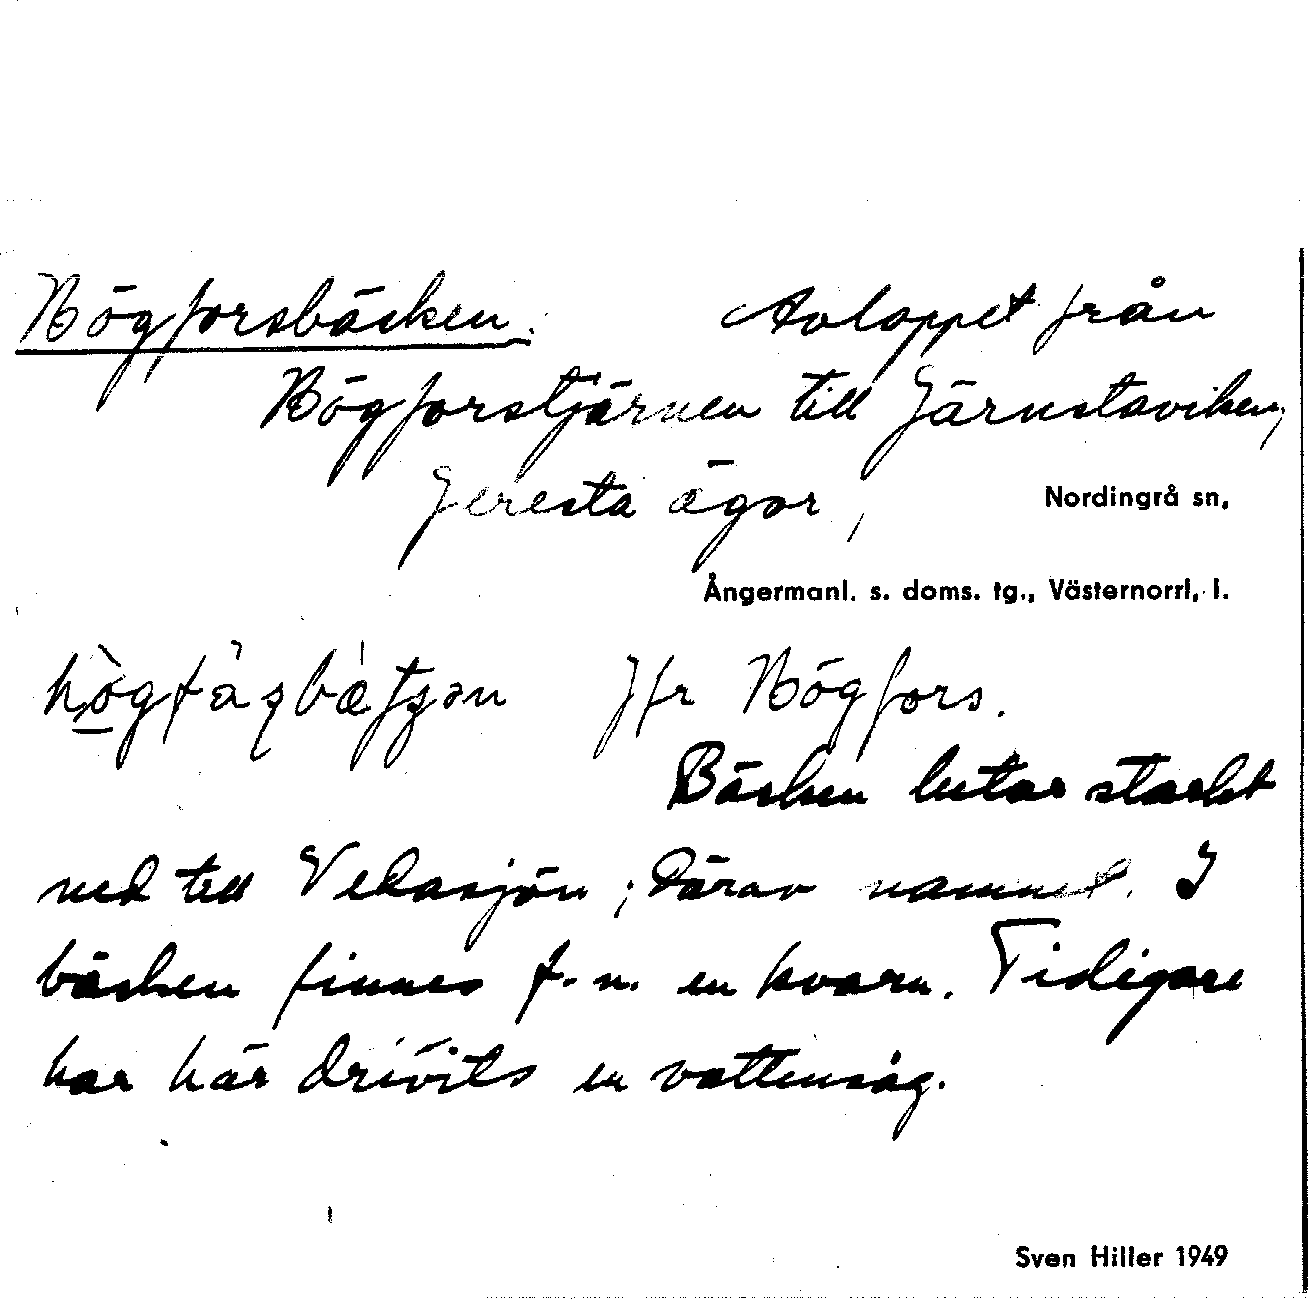 Högforsbäcken. Avloppet från
Högforstjärnen till Järnstaviken,
Jeresta ägor,
Nordingrå sn,
Ångermanl. s. doms. tg., Västernorrl. l.
Jfr Högfors.
Bäcken lutar starkt
ned till Vedasjön; därav namnet. I
bäcken finnes f.n. en kvarn. Tidigare
har här drivits en vattensåg.
Sven Hiller 1949